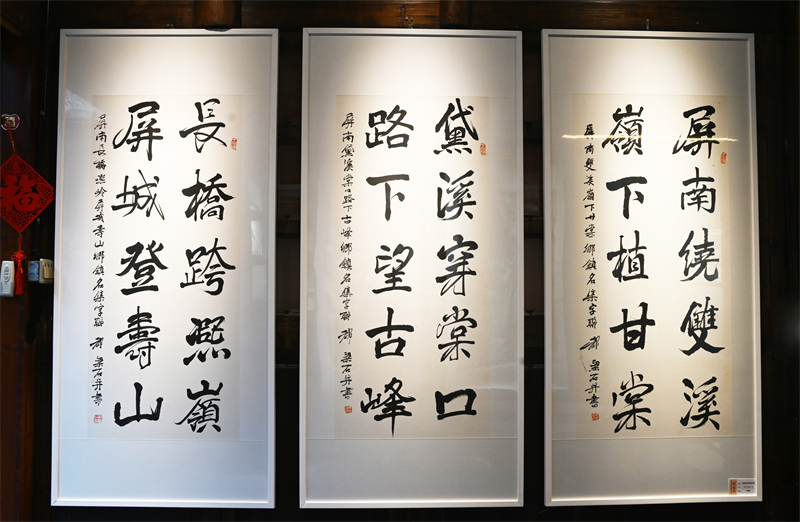 屏南繞雙溪
嶺下植甘棠
屏南雙溪嶺下甘棠鄉鎮名集字聯
梁石并書
黛溪穿棠口
路下望古峰
屏南黛溪棠口路下古峰鄉鎮名集字聯
梁石并書
長橋跨熙嶺
屏城登壽山
屏南長橋熙岭屏城壽山鄉鎮名集字聯
梁石并書